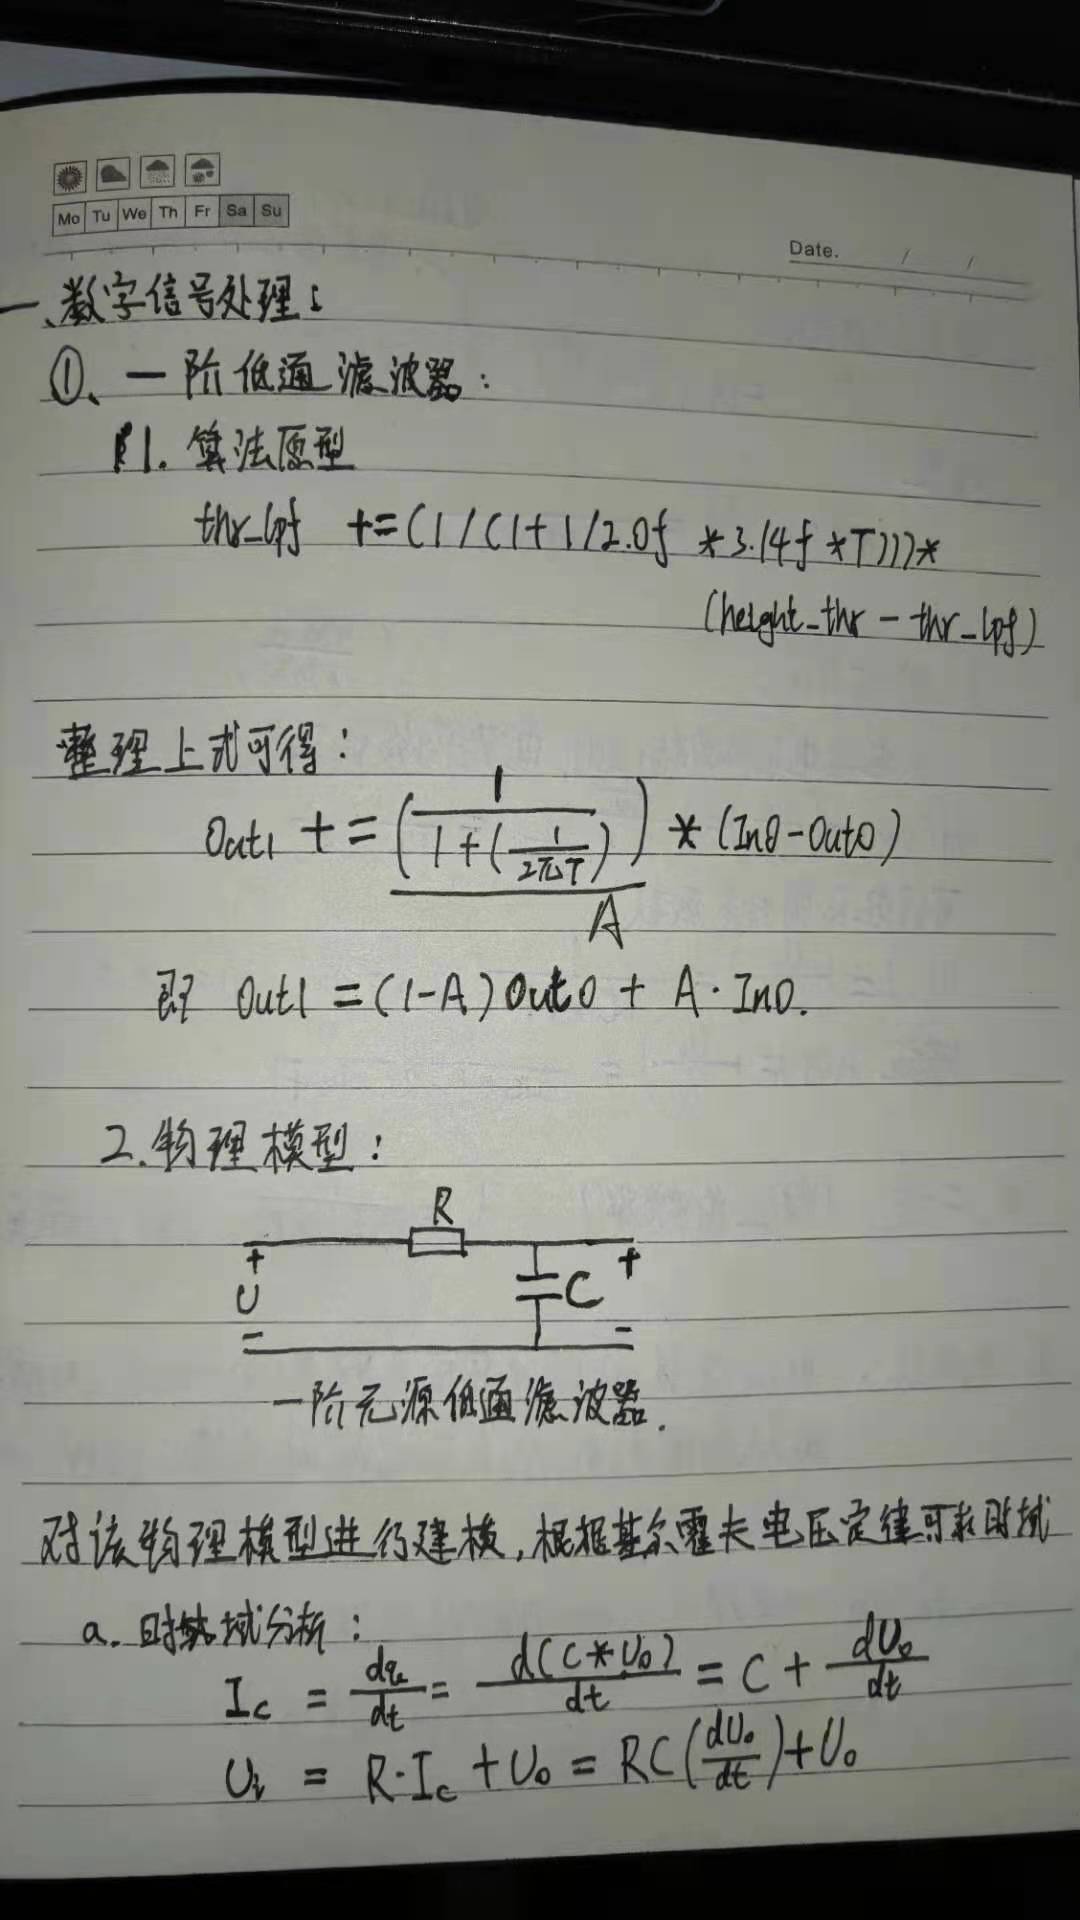 Mo Tu We Th Fr Sa Su
Date. / /
一、数字信号处理:
①、一阶低通滤波器:
1. 算法原型
thr_lpf += (1/(1+1/2.0f *3.14f *T)))*
(height_thr - thr_lpf)
整理上式可得:
Out1 += (1/(1+(1/2πT))) * (In0-Out0)
A
即 Out1 = (1-A)Out0 + A·In0.
2.物理模型:
R
+ +
U C
- -
一阶无源低通滤波器.
对该物理模型进行建模,根据基尔霍夫电压定律可求时域
a. 时域分析:
Ic = dq/dt = d(C*U₀)/dt = C + dU₀/dt
Ui = R·Ic + U₀ = RC(dU₀/dt)+U₀